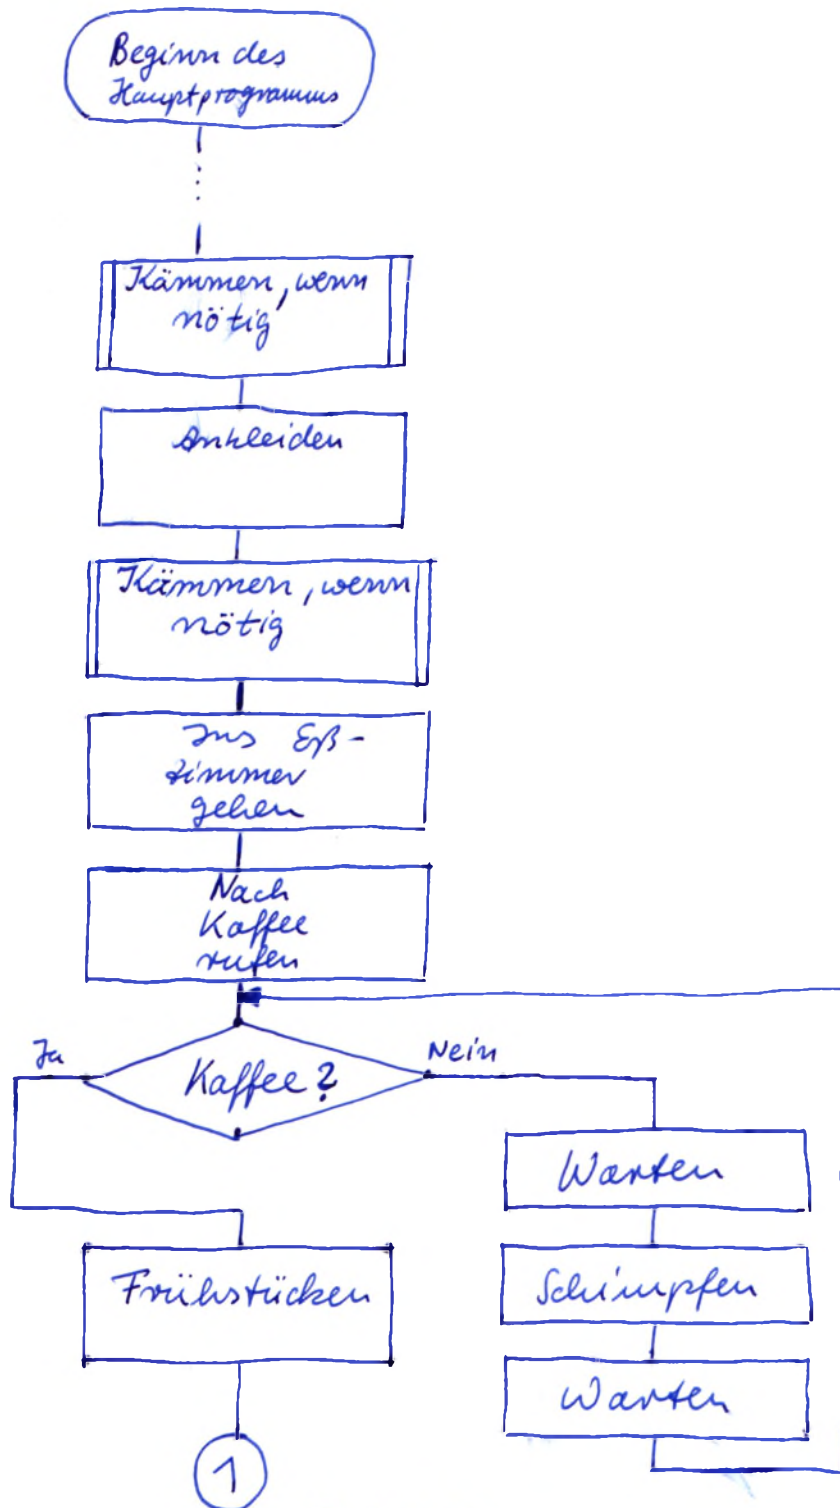 Beginn des
Hauptprogramms
Kämmen, wenn
nötig
Ankleiden
Kämmen, wenn
nötig
Ins Eß-
zimmer
gehen
Nach
Kaffee
rufen
Ja
Kaffee?
Nein
Warten
Schimpfen
Warten
Frühstücken
1